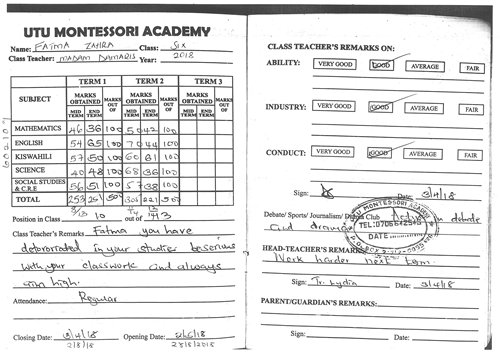 UTU MONTESSORI ACADEMY
Name: FATMA ZAHRA Class: SIX
Class Teacher: MADAM DAMARIS Year: 2018
TERM 1 TERM 2 TERM 3
SUBJECT MARKS OBTAINED MARKS OUT OF MARKS OBTAINED MARKS OUT OF MARKS OBTAINED MARKS OUT OF
MID TERM END TERM MID TERM END TERM MID TERM END TERM
MATHEMATICS 46 36 100 50 42 100
ENGLISH 54 65 100 70 44 100
KISWAHILI 57 50 100 60 61 100
SCIENCE 40 48 100 68 36 100
SOCIAL STUDIES & C.R.E 56 51 100 57 38 100
TOTAL 253 251 500 305 221 500
Position in Class 10 out of 13
Class Teacher's Remarks Fatma you have
deteroriated in your studies be serious
with your classwork and always
aim high.
Attendance: Regular
Closing Date: Opening Date:
2/8/18 28/8/2018
CLASS TEACHER'S REMARKS ON:
ABILITY: VERY GOOD GOOD AVERAGE FAIR
INDUSTRY: VERY GOOD GOOD AVERAGE FAIR
CONDUCT: VERY GOOD GOOD AVERAGE FAIR
Sign: Date: 3/4/18
Debate/ Sports/ Journalism/ Drama Club Active in debate
and drama
UTU MONTESSORI ACADEMY
DATE
HEAD-TEACHER'S REMARKS
Work harder next term.
Sign: Tr. Lydia Date: 3/4/18
PARENT/GUARDIAN'S REMARKS:
Sign: Date: